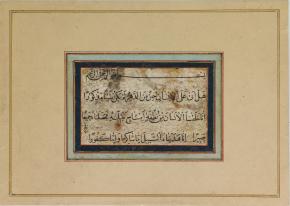 بسم الله الرحمن الرحيم
هل اتى على الانسان حين من الدهر لم يكن شيئا مذكورا
انا خلقنا الانسان من نطفة امشاج نبتليه فجعلناه سميعا
بصيرا انا هديناه السبيل اما شاكرا واما كفورا